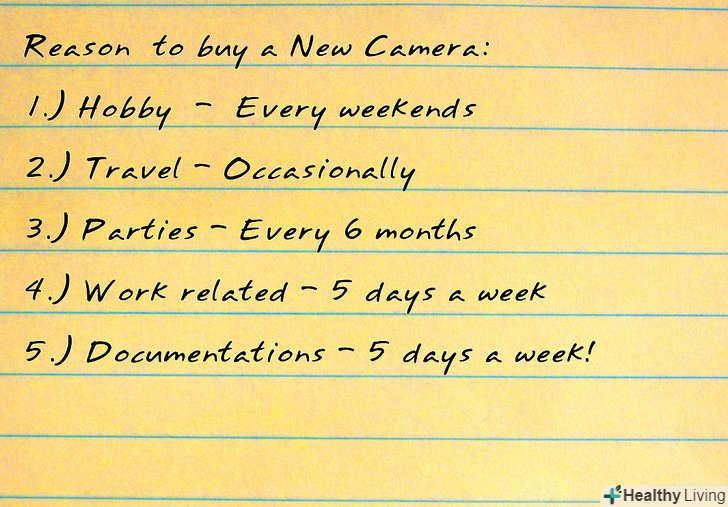 Reason to buy a New Camera:
1.) Hobby - Every weekends
2.) Travel - Occasionally
3.) Parties - Every 6 months
4.) Work related - 5 days a week
5.) Documentations - 5 days a week!
Healthy Living